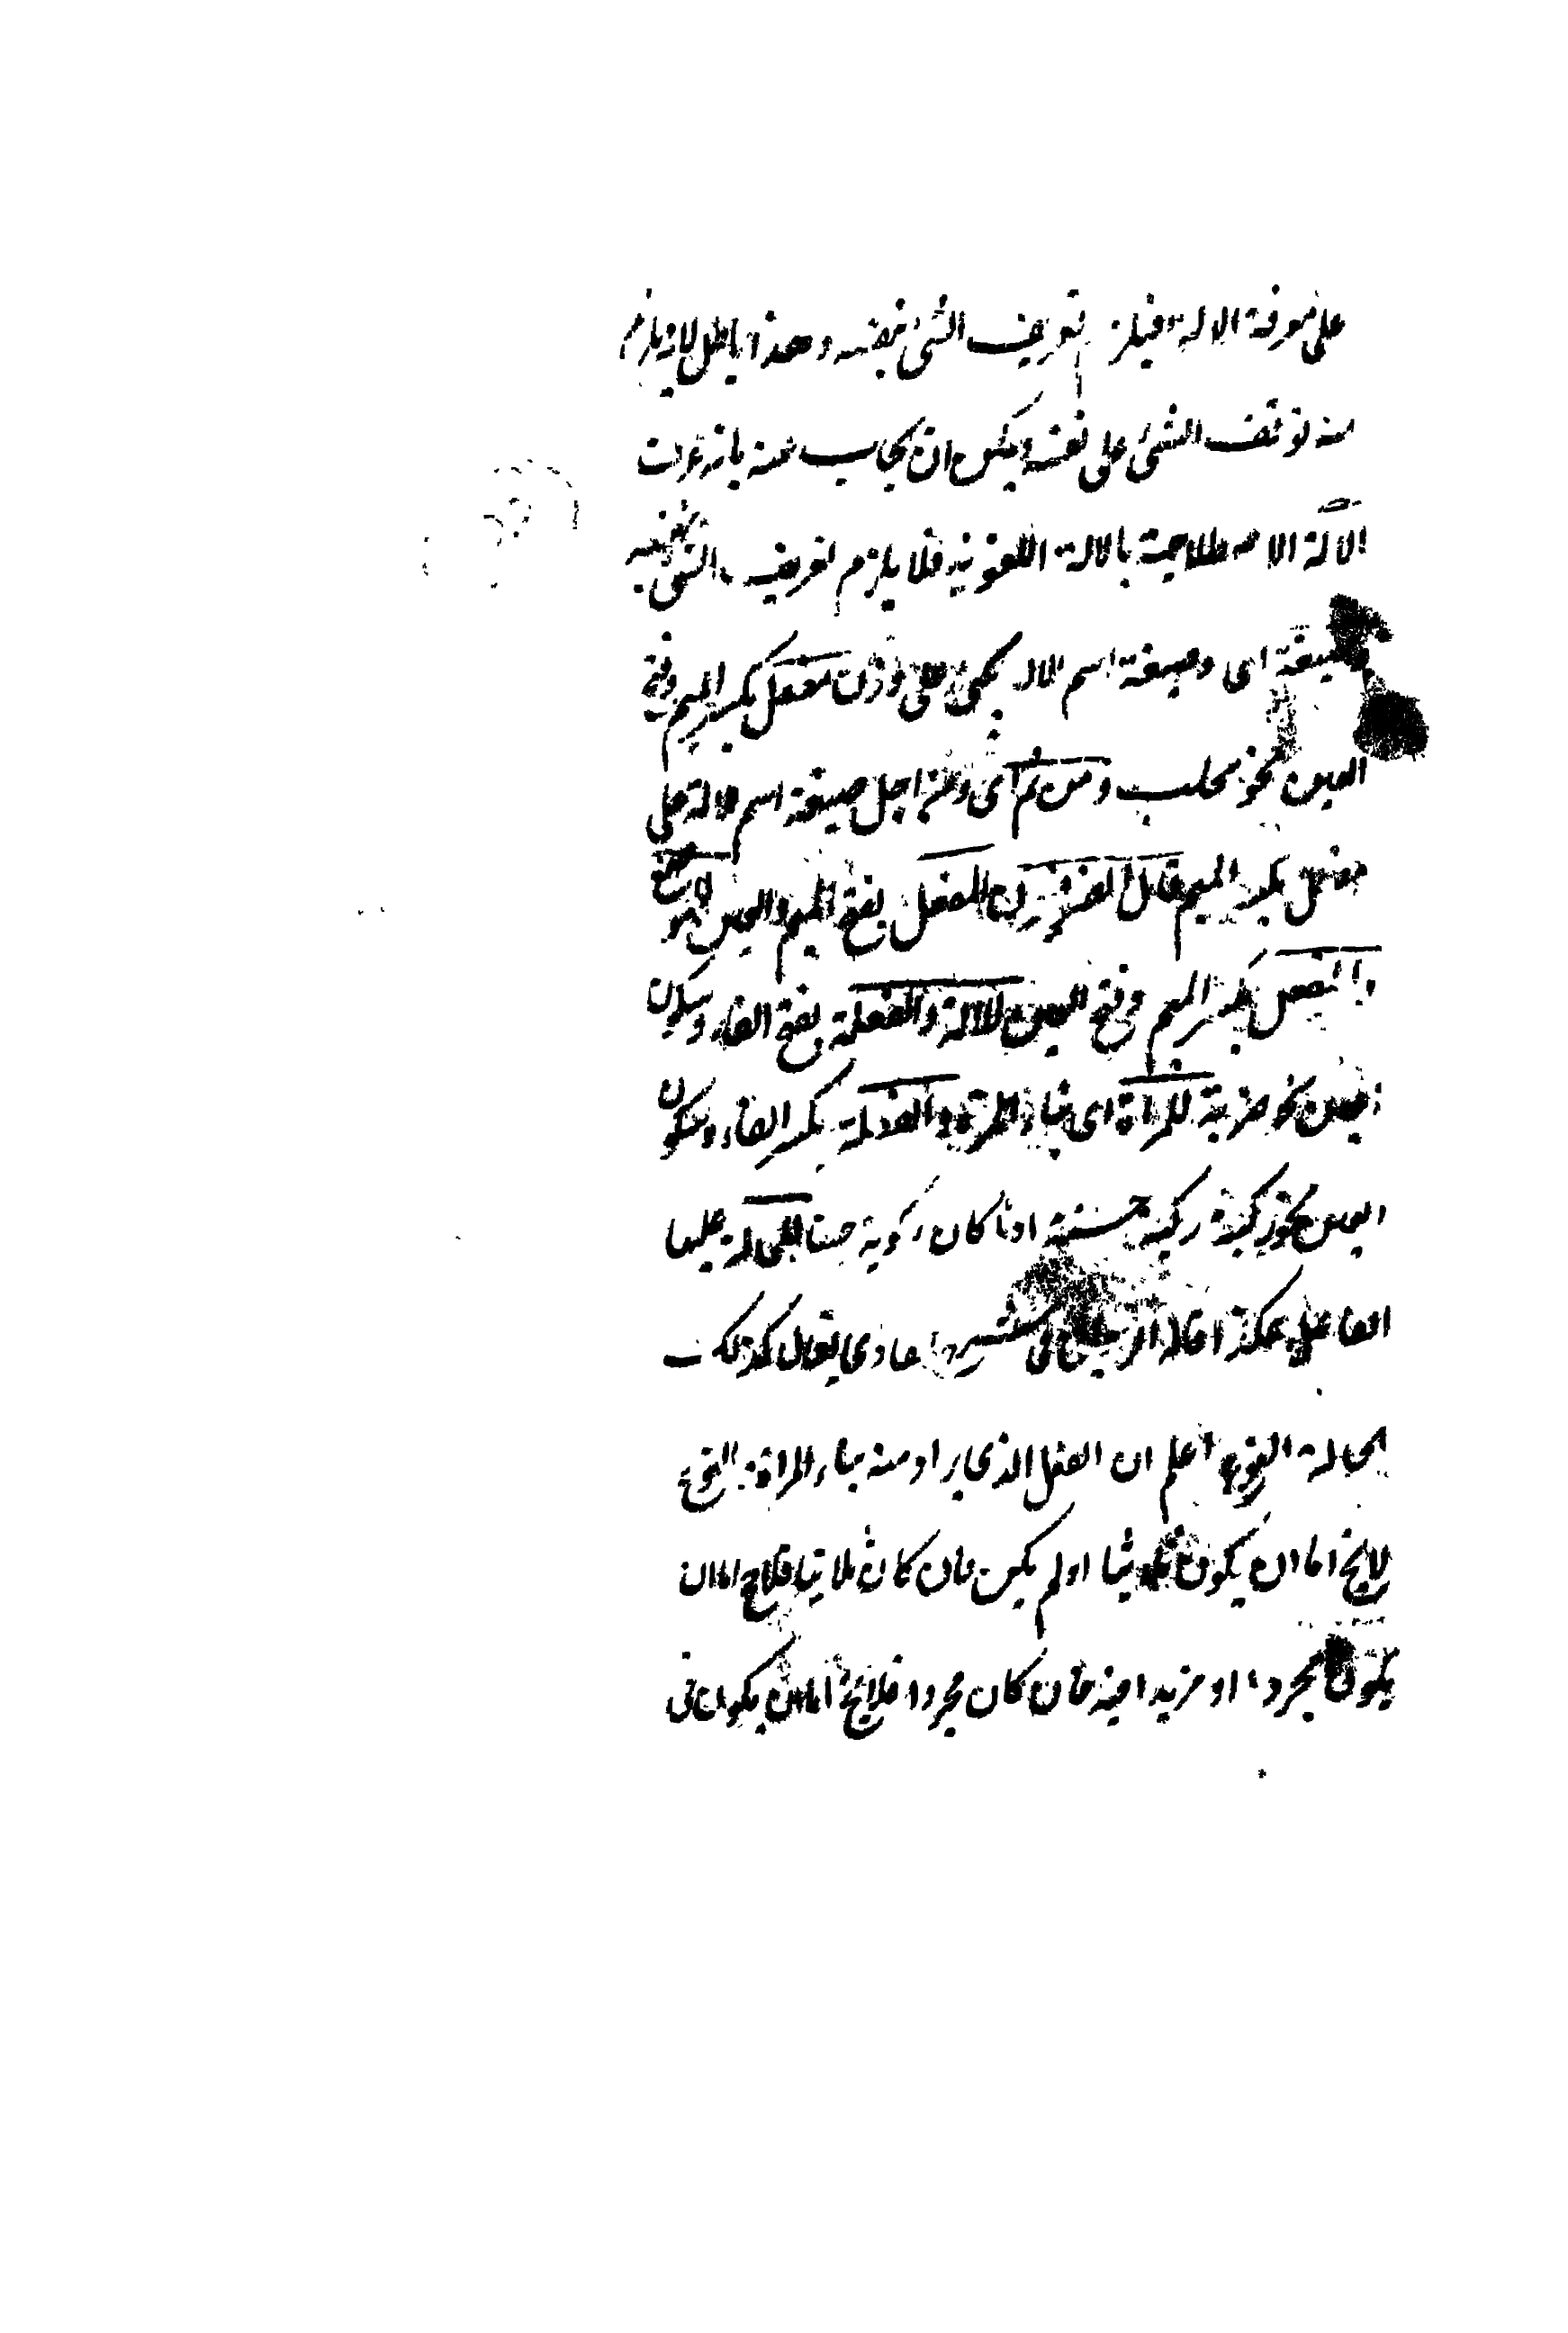 على معرفة الالة فيلزم تعريف الشئ بنفسه وهذا باطل لانه يلزم
منه توقف الشئ على نفسه ويمكن ان يجاب عنه بانه عرفت
الآلة الاصطلاحية بالالة اللغوية فلا يلزم تعريف الشئ بنفسه
وصيغة اى وصيغة اسم الالة يجئ على وزن مفعل بكسر الميم وفتح
العين نحو محلب ومن ثم اى ومن اجل صيغة اسم الالة على
مفعل بكسر الميم قال الصرفيون المفعل بفتح الميم والعين للموضع
والمفعل بكسر الميم وفتح العين للالة والفعلة بفتح الفاء وسكون
العين نحو ضربة للمرة اى بناء للمرة والفعلة بكسر الفاء وسكون
العين نحو ركبة ركبة حسنة اذا كان ركوبه حسنا للحالة عليها
الفاعل هكذا قاله فى عادى يقال كذلك
الحالة النوع اعلم ان الفعل الذى يراد منه بناء المراة النوع
لايخ اما ان يكون ثلاثيا اولم يكن فان كان ثلاثيا فلايخ اما ان
يكون مجردا او مزيدا فيه فان كان مجردا فلايخ اما ان يكون فى